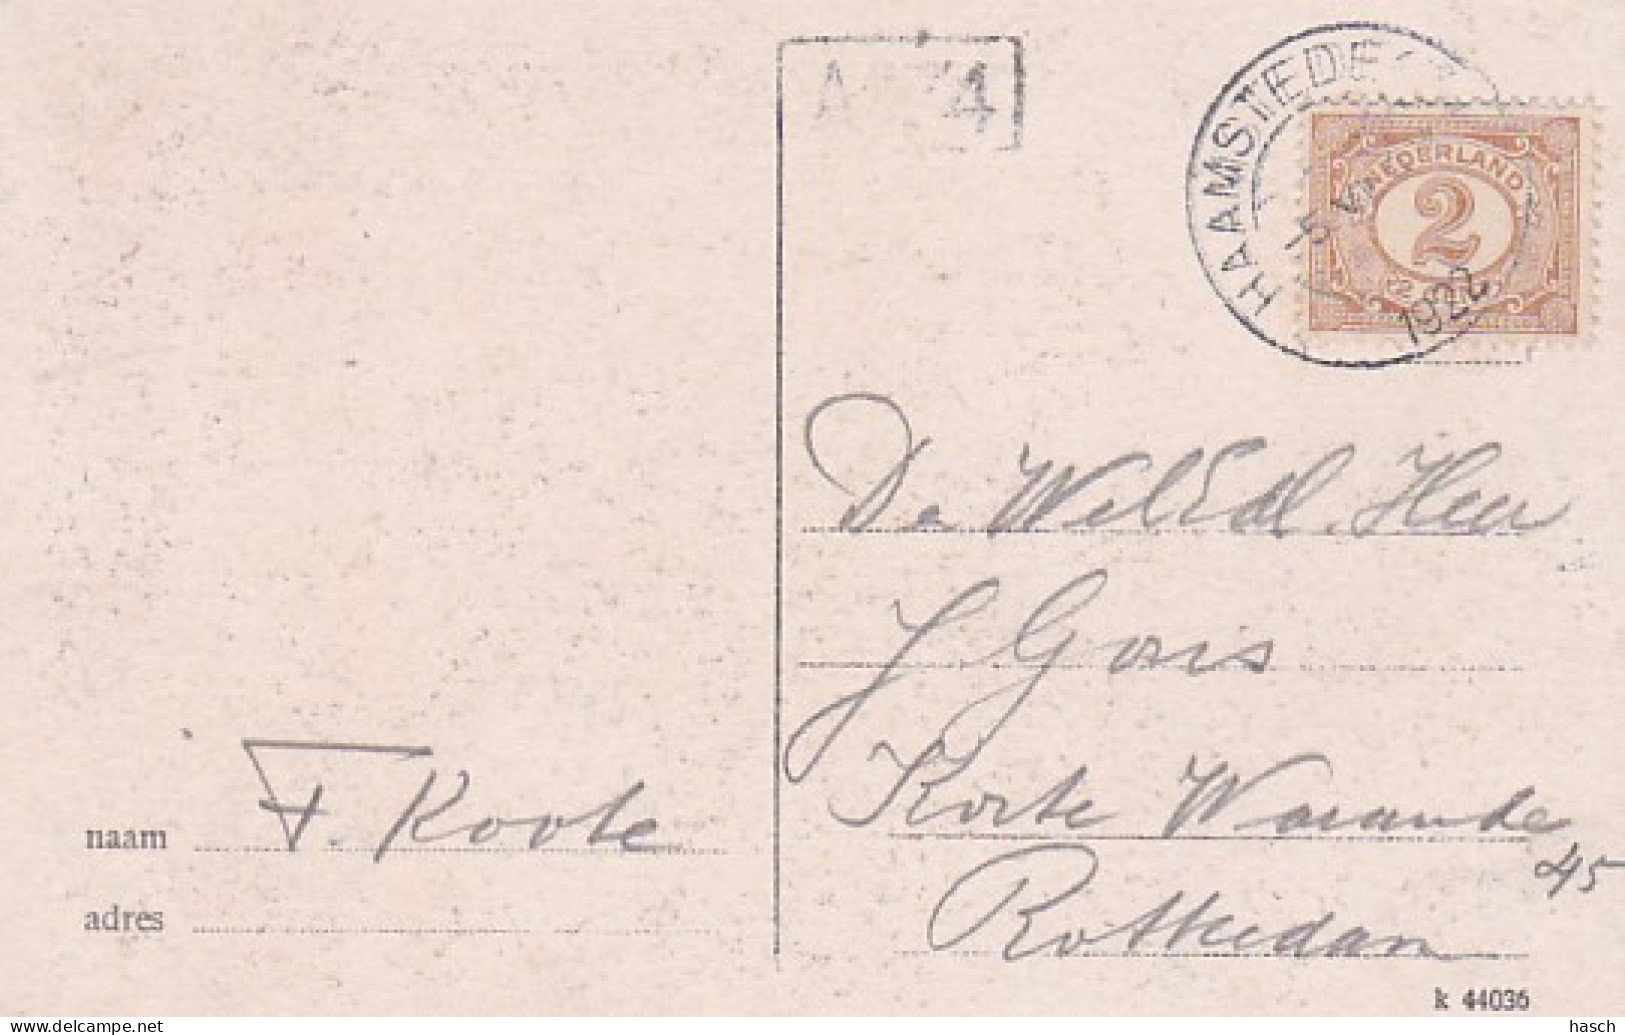 HAAMSTEDE
1922
NEDERLAND
2
De WelEdl. Heer
J Goris
Korte Warande
45
Rotterdam
naam F. Koole
adres
k 44036
© delcampe.net
hasch